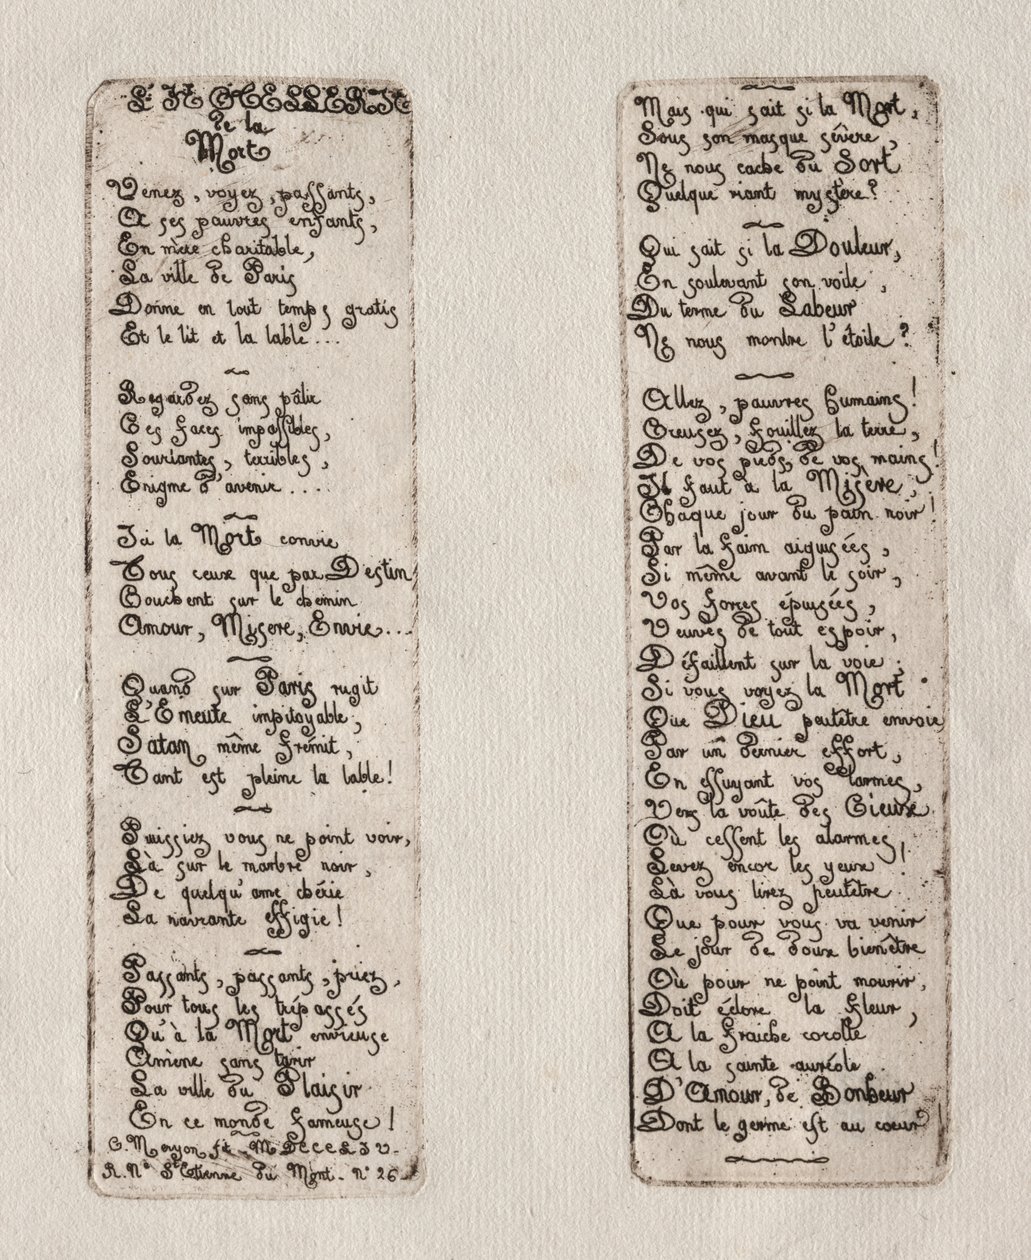 L'HÔTELLERIE
De la
Mort
Venez, voyez, passants,
A ses pauvres enfants,
En mère charitable,
La ville de Paris
Donne en tout temps gratis
Et le lit et la table...
Regardez sans pâlir
Ces faces impassibles,
Souriantes, terribles,
Enigme d'avenir....
Ici la Mort convie
Tous ceux que par Destin
Couchent sur le chemin
Amour, Misere, Envie...
Quand sur Paris rugit
L'Emeute impitoyable,
Satan même frémit,
Tant est pleine la table!
Puissiez vous ne point voir,
Là sur le marbre noir,
De quelqu'ame chérie
La navrante effigie!
Passants, passants, priez,
Pour tous les trépassés
Qu'à la Mort envieuse
Amène sans tarir
La ville du Plaisir
En ce monde fameuse!
C. Meryon ft. MDCCCLIV.
R. Ne St Etienne du Mont. No 26
Mais qui sait si la Mort,
Sous son masque sévère,
Ne nous cache du Sort
Quelque riant mystère?
Qui sait si la Douleur,
En soulevant son voile,
Du terme du Labeur
Ne nous montre l'étoile?
Allez, pauvres humains!
Creusez, fouillez la terre,
De vos pieds, de vos mains!
Il faut à la Misère,
Chaque jour du pain noir!
Par la faim aiguisées,
Si même avant le soir,
Vos forces épuisées,
Veuves de tout espoir,
Défaillent sur la voie;
Si vous voyez la Mort
Que Dieu peutêtre envoie
Par un dernier effort,
En essuyant vos larmes,
Vers la voûte des Cieux
Où cessent les alarmes,
Levez encor les yeux!
Là vous lirez peutêtre
Que pour vous va venir
Le jour de doux bienêtre
Où pour ne point mourir,
Doit éclore la fleur,
A la fraiche corolle
A la sainte auréole
D'Amour, de Bonheur
Dont le germe est au coeur!